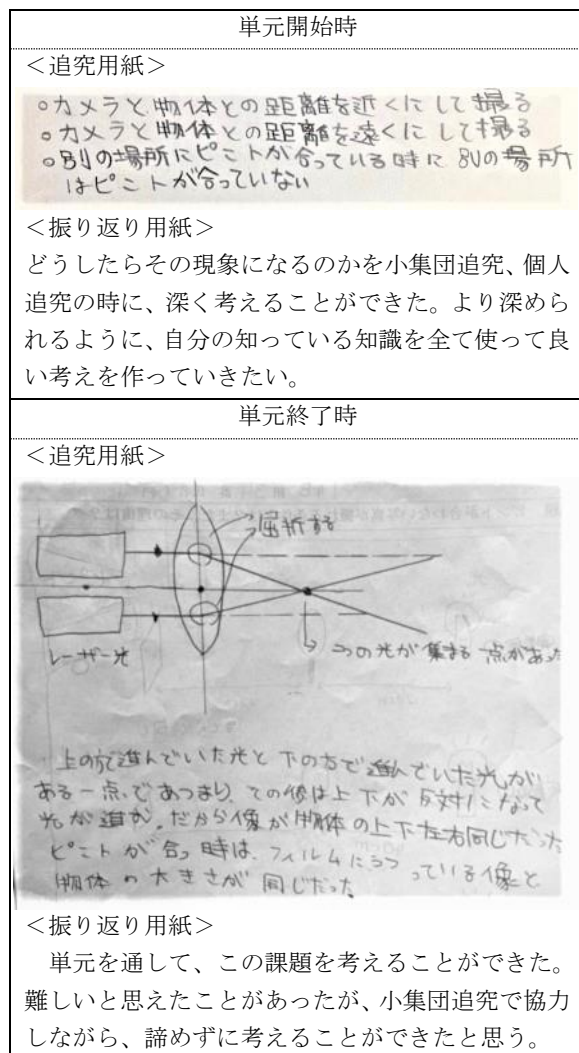 単元開始時
＜追究用紙＞
○カメラと物体との距離を近くにして撮る
○カメラと物体との距離を遠くにして撮る
○別の場所にピントが合っている時に別の場所
はピントが合っていない
＜振り返り用紙＞
どうしたらその現象になるのかを小集団追究、個人
追究の時に、深く考えることができた。より深めら
れるように、自分の知っている知識を全て使って良
い考えを作っていきたい。
単元終了時
＜追究用紙＞
屈折する
レーザー光
2つの光が集まる一点があった
上の方で進んでいた光と下の方で進んでいた光が
ある一点であつまり、その後は上下が反対になって
光が進む。だから像が物体の上下左右同じだった
ピントが合う時は、フィルムにうつっている像と
物体の大きさが同じだった
＜振り返り用紙＞
単元を通して、この課題を考えることができた。
難しいと思えたことがあったが、小集団追究で協力
しながら、諦めずに考えることができたと思う。